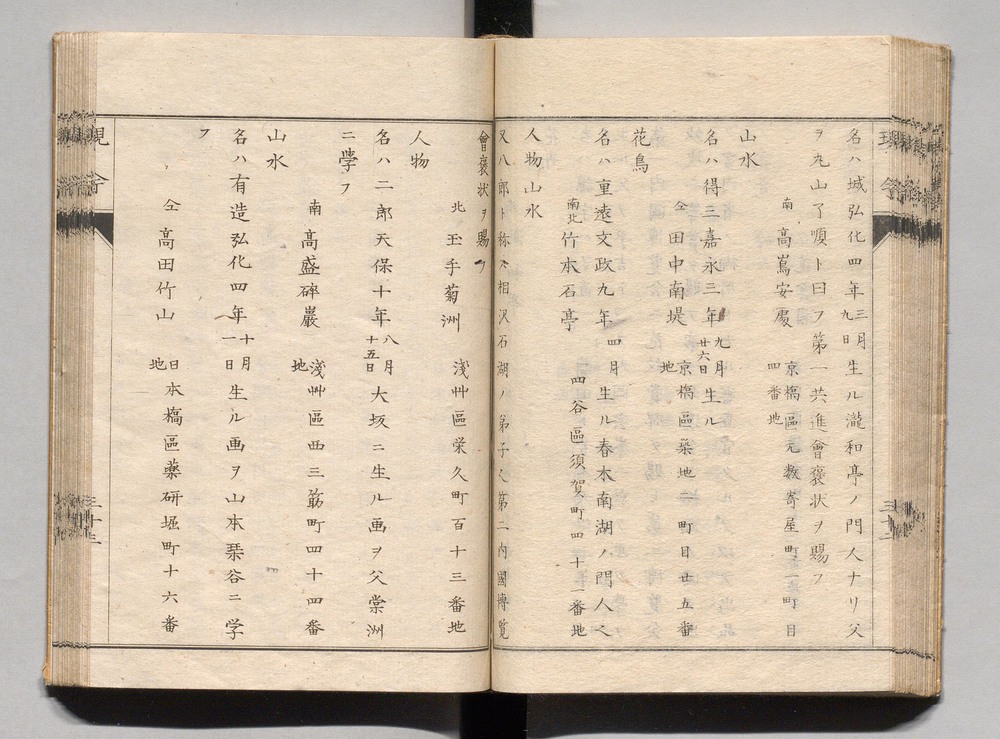 名ハ城弘化四年三月九日生ル瀧和亭ノ門人ナリ父
ヲ九山了順ト曰フ第一共進會褒状ヲ賜フ
南 高嶌安慶 京橋區元数寄屋町一町目四番地
山水
名ハ得三嘉永三年九月廿六日生ル
仝 田中南堤 京橋區築地 町目廿五番地
花鳥
名ハ重遠文政九年四月生ル春木南湖ノ門人
南北 竹本石亭 四谷區須賀町四十一番地
人物山水
又八郎ト称ス相沢石湖ノ弟子 第二内國博覧
會褒状ヲ賜フ
北 玉手菊洲 淺艸區栄久町百十三番地
人物
名ハ二郎天保十年八月十五日大坂ニ生ル画ヲ父棠洲
ニ學フ
南 高盛碎巖 淺艸區西三筋町四十四番地
山水
名ハ有造弘化四年十月一日生ル画ヲ山本琹谷ニ学
フ
仝 高田竹山 日本橋區薬研堀町十六番地